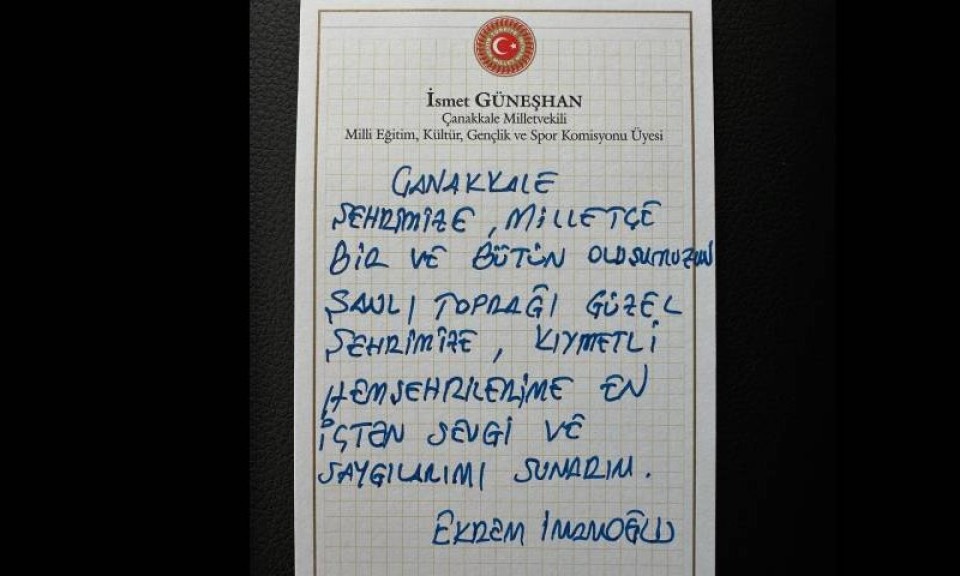 İsmet GÜNEŞHAN
Çanakkale Milletvekili
Milli Eğitim, Kültür, Gençlik ve Spor Komisyonu Üyesi
ÇANAKKALE
ŞEHRİMİZE, MİLLETÇE
BİR VE BÜTÜN OLDUĞUMUZUN
ŞANLI TOPRAĞI GÜZEL
ŞEHRİMİZE, KIYMETLİ
HEMŞEHRİLERİME EN
İÇTEN SEVGİ VE
SAYGILARIMI SUNARIM.
EKREM İMAMOĞLU